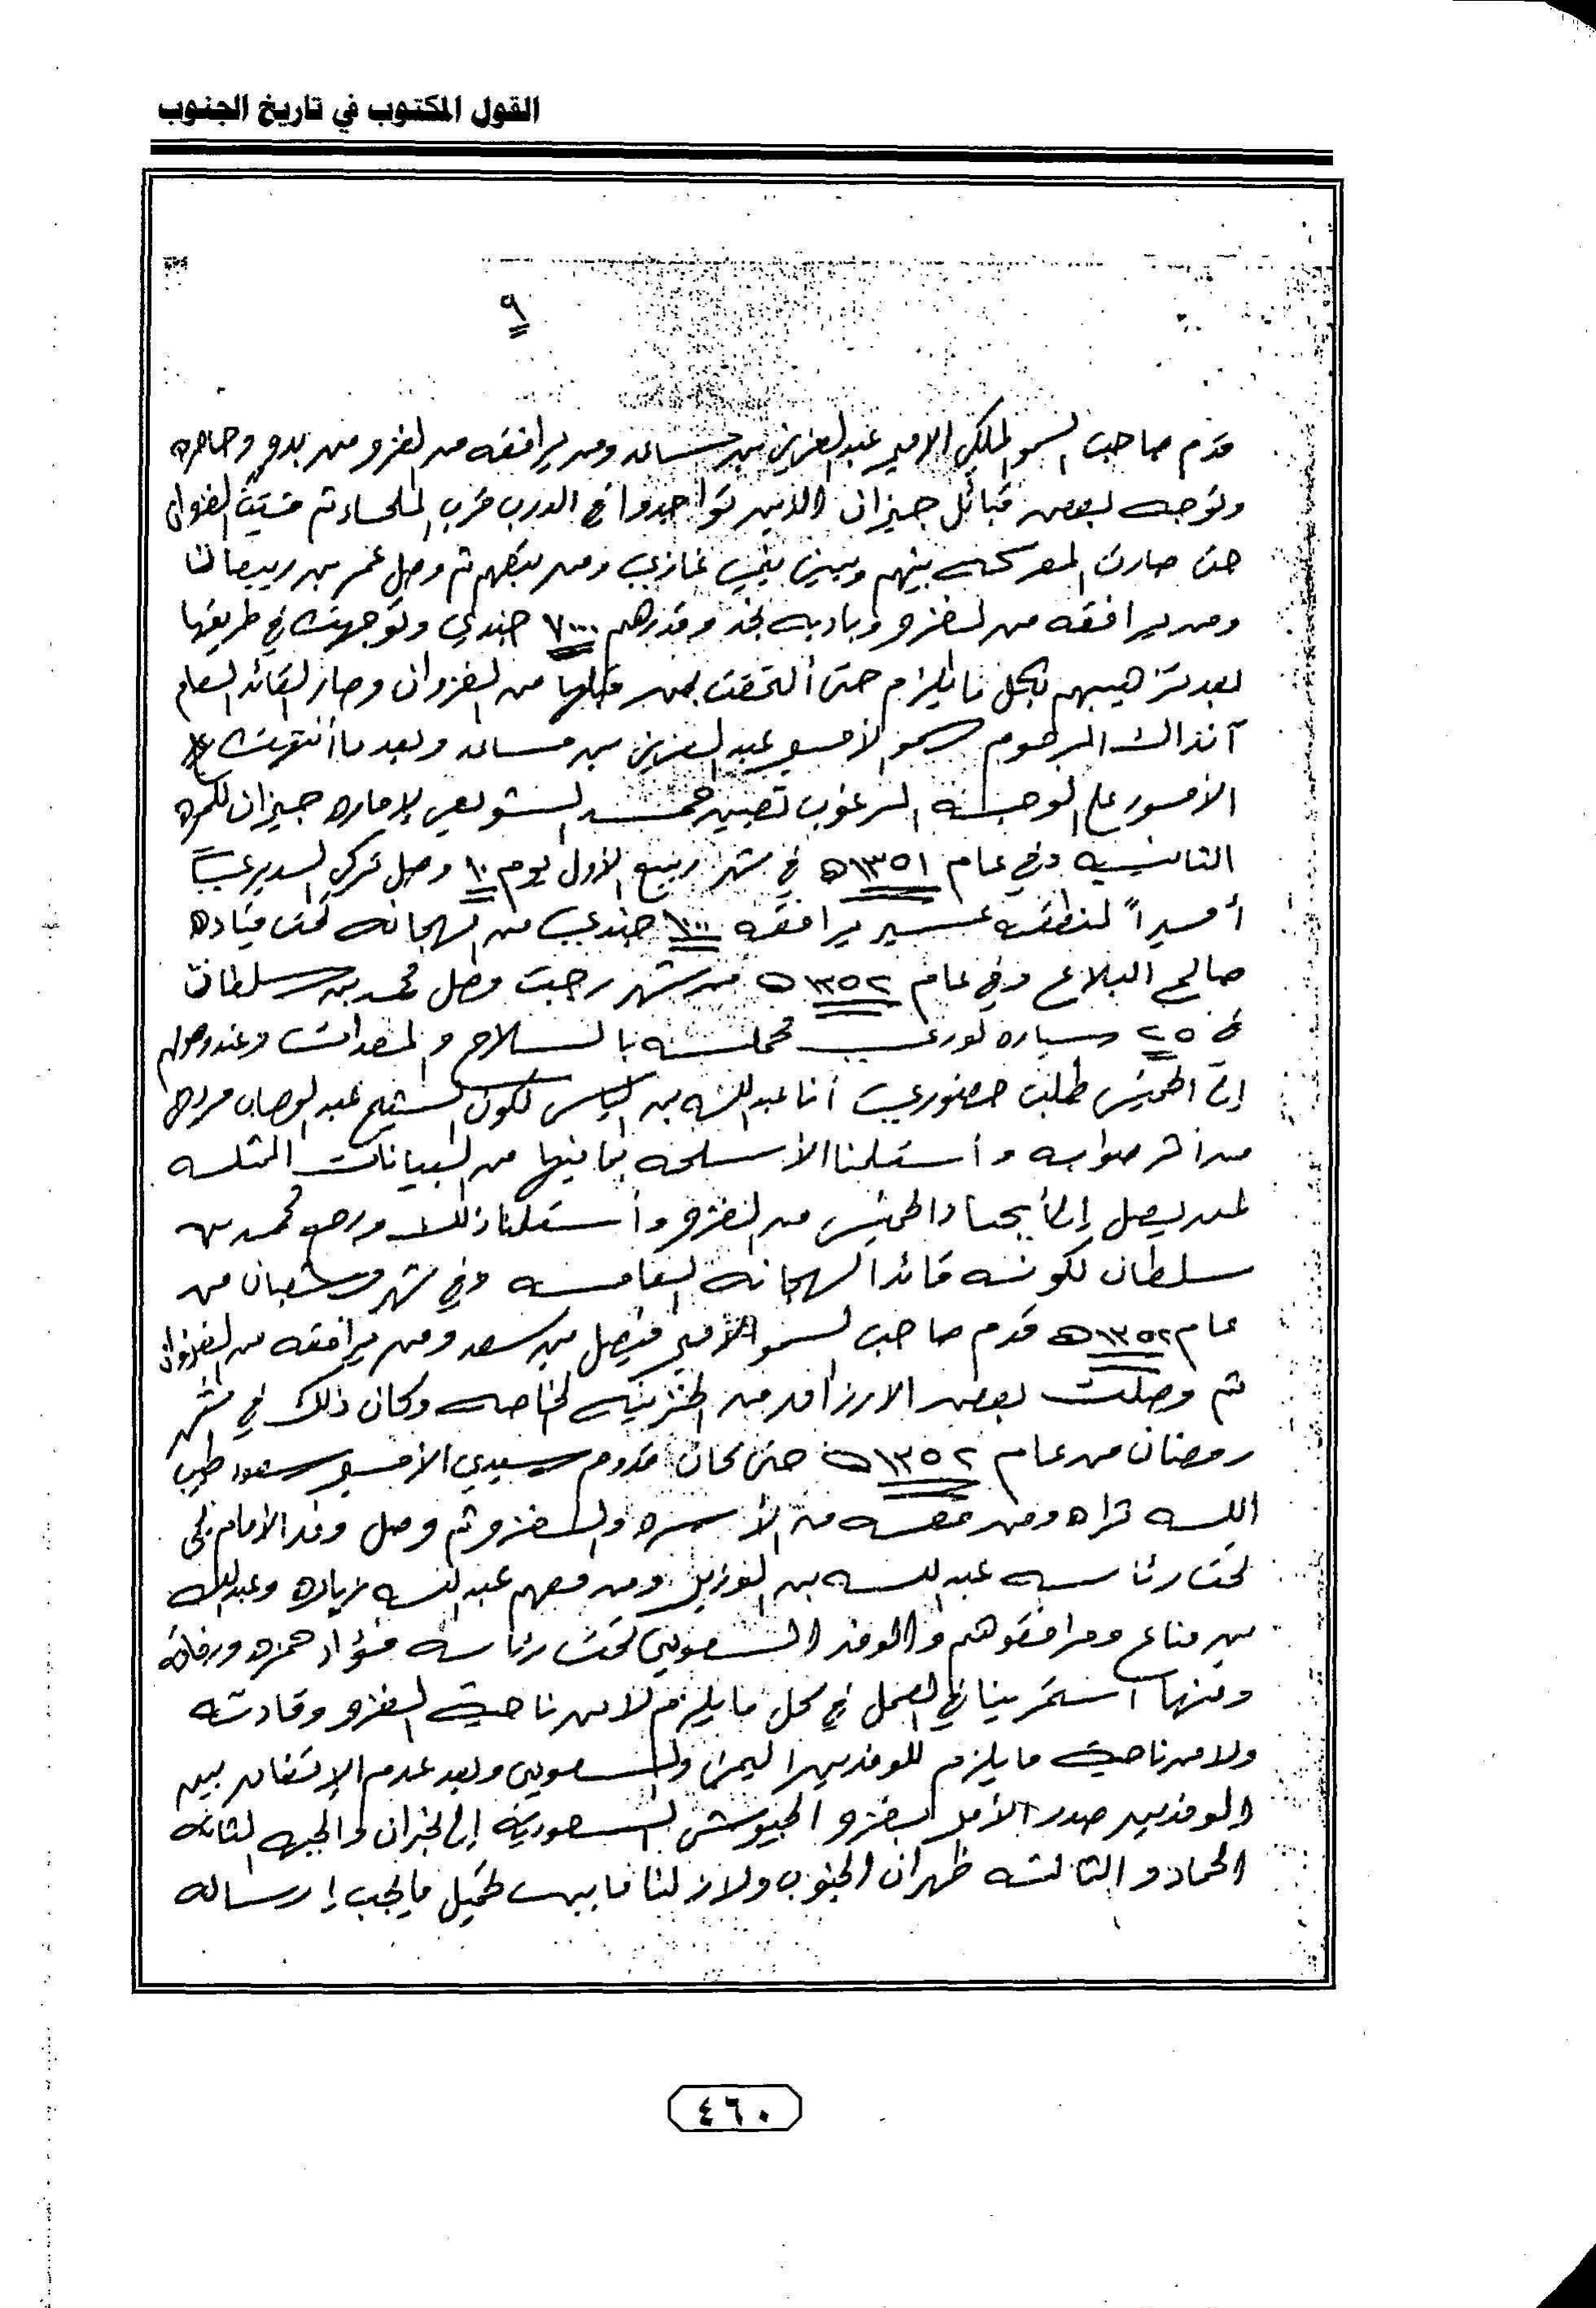 القول المكتوب في تاريخ الجنوب
٩
قدم صاحب السمو الملكي الامير عبدالعزيز بن مساعد ومن يرافقه من الغزو من بدو وحاضره
وتوجه لبعض قبائل جيزان الذين تواجدوا في الدرب قرب الملحاء ثم
حتى صارت المعركه بينهم وبين غازي ومن ثم وصل عمر بن ربيعان
ومن يرافقه من الغزو وباديه نجد وقدرهم ٧٠٠٠ جندي وتوجهت في طريقها
بعد تزهيبهم بكل ما يلزم حتى ألتحقت بمن قبلها من الغزوان وصار القائد العام
آنذاك المرحوم سمو الأمير عبدالعزيز بن مساعد وبعد ما أنتهت
الأمور على الوجه المرغوب تعين حمد الشويعر لإماره جيزان للمره
الثانيه وفي عام ١٣٥١ه في شهر ربيع الأول يوم ١٠ وصل تركي السديري
أميراً لمنطقة عسير يرافقه ١٠٠ جندي من الهجانه تحت قياده
صالح البلاع وفي عام ١٣٥٢ه من شهر رجب وصل محمد بن سلطان
في ٢٥ سياره لوري محمله بالسلاح والمعدات وعند وصولهم
إلى الخميس طلب حضوري أنا عبدالله بن الياس لكون الشيخ عبدالوهاب
وأستلمنا الأسلحه بما فيها من البيانات
لمن يصل إلى أبها والخميس من الغزو وأستلمنا ذلك ورجع محمد بن
سلطان لكونه قائد الهجانه العامه وفي شهر شعبان من
عام ١٣٥٢ه قدم صاحب السمو الأمير فيصل بن سعد ومن يرافقه من الغزوان
ثم وصلت بعض الارزاق من الخزينه الخاصه وكان ذلك في شهر
رمضان من عام ١٣٥٢ه حتى كان قدوم سيدي الأمير سعود طيب
الله ثراه ومن معه من الأسره والغزو ثم وصل وفد الأمام يحي
تحت رئاسه عبدالله بن الوزير ومن معهم عبدالله زياره وعبدالله
بن مناع ومرافقوهم والوفد السعودي تحت رئاسة فؤاد حمزه ورفاقه
ومنها استمرينا في العمل في كل ما يلزم لا من ناحية الغزو وقادته
ولا من ناحية ما يلزم للوفدين اليمني والسعودي وبعد عدم الإتفاق بين
الوفدين صدر الأمر لغزو الجيوش السعودية إلى نجران والجبهه الثانيه
الحماد والثالثه ظهران الجنوب ولا زلنا ما بين تحميل ما يجب إرساله
٤٦٠